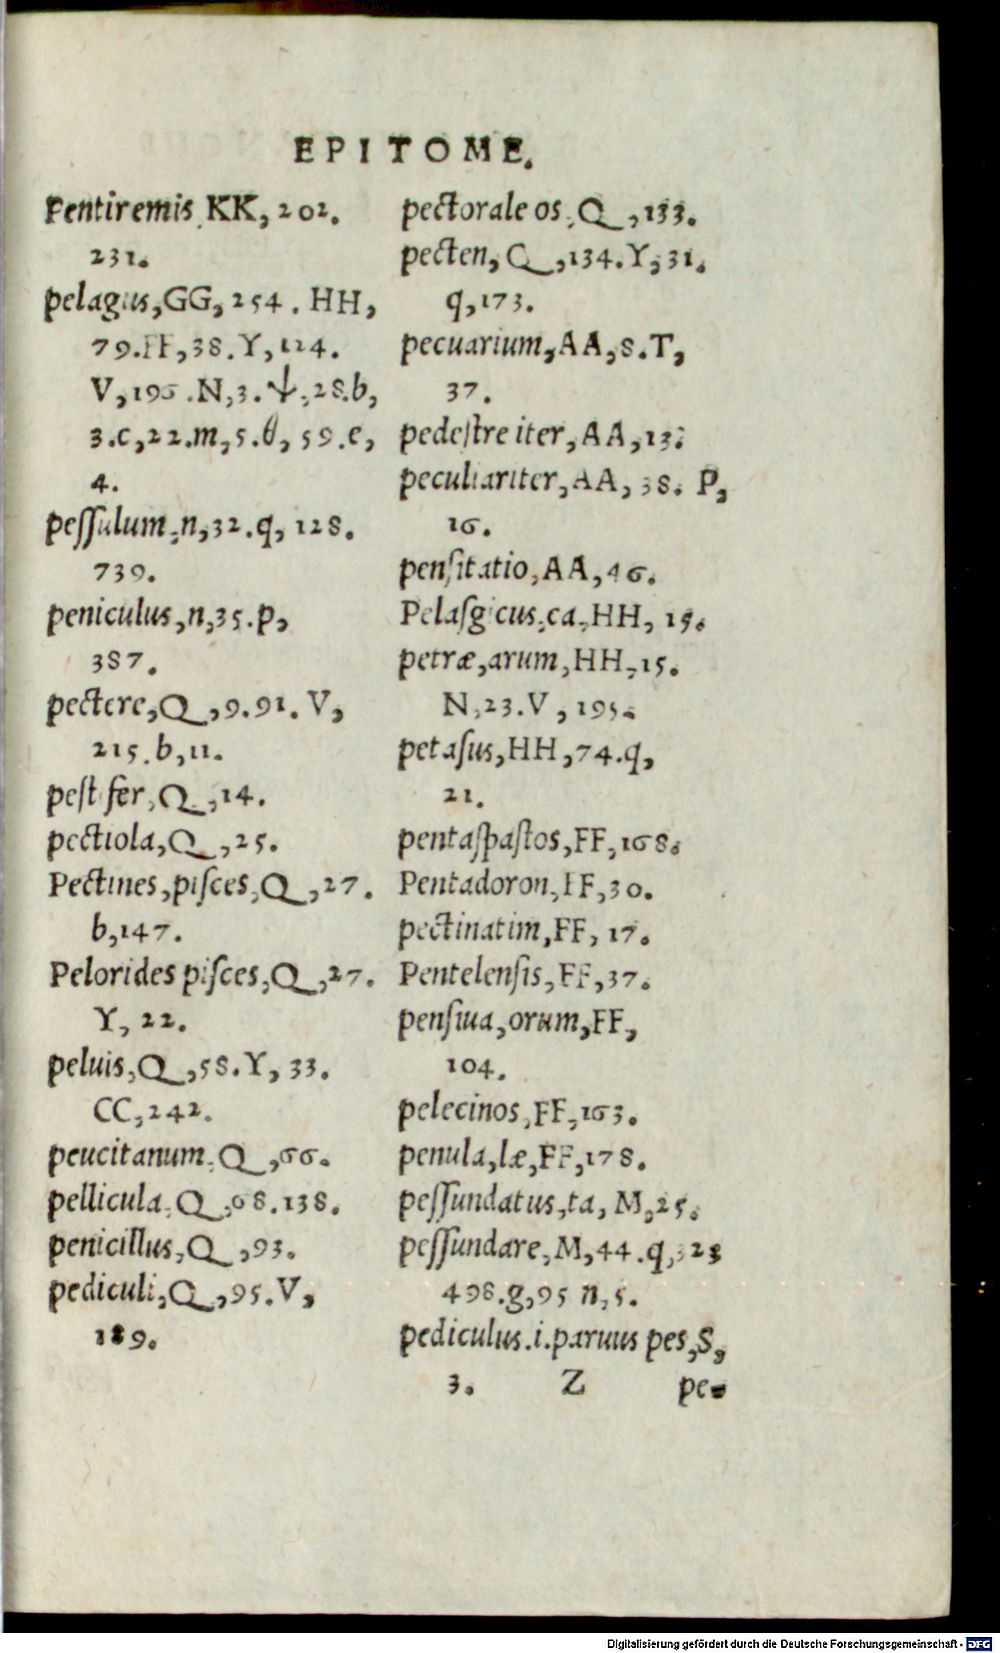 EPITOME.
Pentiremis KK, 202.
231.
pelagus, GG, 254. HH,
79. FF, 38. Y, 124.
V, 196. N, 3. ψ, 28. b,
3. c, 22. m, 5. θ, 59. e,
4.
peſſulum, n, 32. q, 128.
739.
peniculus, n, 35. p,
387.
pectere, Q, 9. 91. V,
215. b, 11.
peſtifer, Q, 14.
pectiola, Q, 25.
Pectines, piſces, Q, 27.
b, 147.
Pelorides piſces, Q, 27.
Y, 22.
peluis, Q, 58. Y, 33.
CC, 242.
peucitanum, Q, 66.
pellicula, Q, 68. 138.
penicillus, Q, 93.
pediculi, Q, 95. V,
189.
pectorale os, Q, 133.
pecten, Q, 134. Y, 31.
q, 173.
pecuarium, AA, 8. T,
37.
pedeſtre iter, AA, 13.
peculiariter, AA, 38. P,
16.
penſitatio, AA, 46.
Pelaſgicus, ca, HH, 15.
petræ, arum, HH, 15.
N, 23. V, 195.
petaſus, HH, 74. q,
21.
pentaſpaſtos, FF, 168.
Pentadoron, FF, 30.
pectinatim, FF, 17.
Pentelenſis, FF, 37.
penſiua, orum, FF,
104.
pelecinos, FF, 163.
penula, læ, FF, 178.
peſſundatus, ta, M, 25.
peſſundare, M, 44. q, 323
498. g, 95 n, 5.
pediculus. i. paruus pes, S,
3. Z pe-
Digitalisierung gefördert durch die Deutsche Forschungsgemeinschaft - DFG